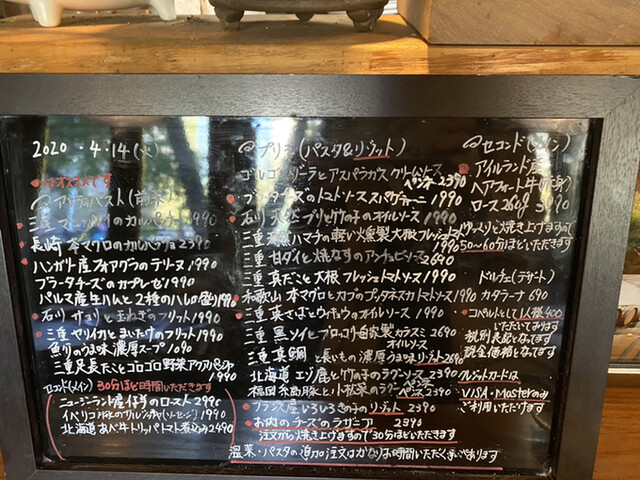 2020.4.14(火)
オススメです
アンティパスト(前菜)
三重 のカルパッチョ 1990
長崎 本マグロのカルパッチョ 2390
ハンガリー産フォアグラのテリーヌ 1990
ブラータチーズのカプレーゼ 1990
パルマ産生ハムと2種のハムの盛り 1990
石川 サヨリと玉ねぎのフリット 1990
三重 ヤリイカとまいたけのフリット 1990
魚介のうま味 濃厚スープ 1090
三重 足長だことゴロゴロ野菜 1990
セコンド(メイン) 30分ほど時間いただきます
ニュージーランド産仔羊のロースト 2990
イベリコ (ソーセージ) 1990
北海道 あべ牛トリッパトマト煮込み 2490
プリモ(パスタ&リゾット)
ゴルゴンゾーラとアスパラガス クリームソース ペンネ 2390
ブラータチーズのトマトソース スパゲティーニ 1990
石川 天然ブリと竹の子のオイルソース 1990
三重 天然ハマチの軽い燻製 大根 フレッシュトマトソース 1990
三重 甘ダイと焼なすのアンチョビソース 2690
三重 真だこと大根 フレッシュトマトソース 1990
和歌山 本マグロとカブのプッタネスカ トマトソース 1990
三重 来さばとウイキョウのオイルソース 1990
三重 黒ソイとブロッコリ 自家製カラスミ オイルソース 2690
三重 真鯛と長いもの濃厚うま味リゾット 2690
北海道 エゾ鹿と竹の子のラグーソース 2390
福岡 糸島豚と小松菜のラグーソース ペンネ 2390
フランス産いろいろきの子のリゾット 2390
お肉のチーズのラザニア 2390
注文から焼き上げますので30分ほどいただきます
温菜・パスタの追加注文はかなりお時間いただくことがあります
セコンド(メイン)
アイルランド産
ヘアフォート牛
ロース 260g 3990
じっくりと焼き上げますので
50〜60分ほどいただきます
ドルチェ(デザート)
カタラーナ 690
コペルトとして1人様400
いただいております
税別表記となってます
現金価格となってます
クレジットカードは
VISA・Masterのみ
ご利用いただけます